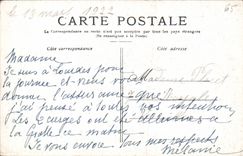 le 13 mars 1922
65
CARTE POSTALE
La Correspondance au recto n'est pas acceptée par tous les pays étrangers
(Se renseigner à la Poste)
Côté correspondance
Côté adresse
Madame
Je suis à Lourdes pour
la journée et vous
Madame
donne l'assurance que
j'ai pensé à toutes vos intentions
Les cierges ont été allumés à
la Grotte ce matin
Je vous envoie tous mes respects
Mélanie